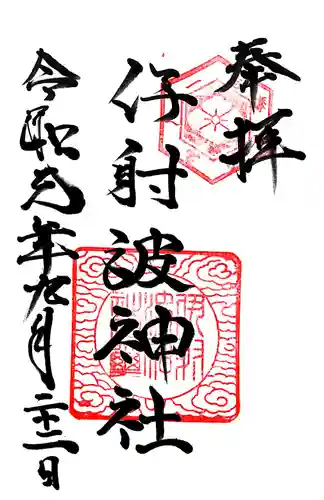 奉拝
伊射波神社
令和元年九月二十三日